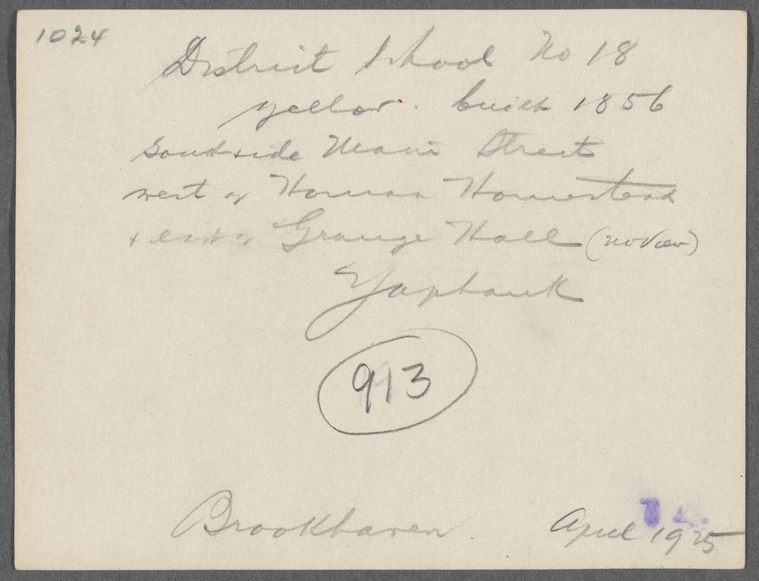 1024
District School No 18
yellow. built 1856
South side Main Street
west of Homan Homestead
+ east of Grange Hall (no view)
Yaphank
913
Brookhaven
April 1925